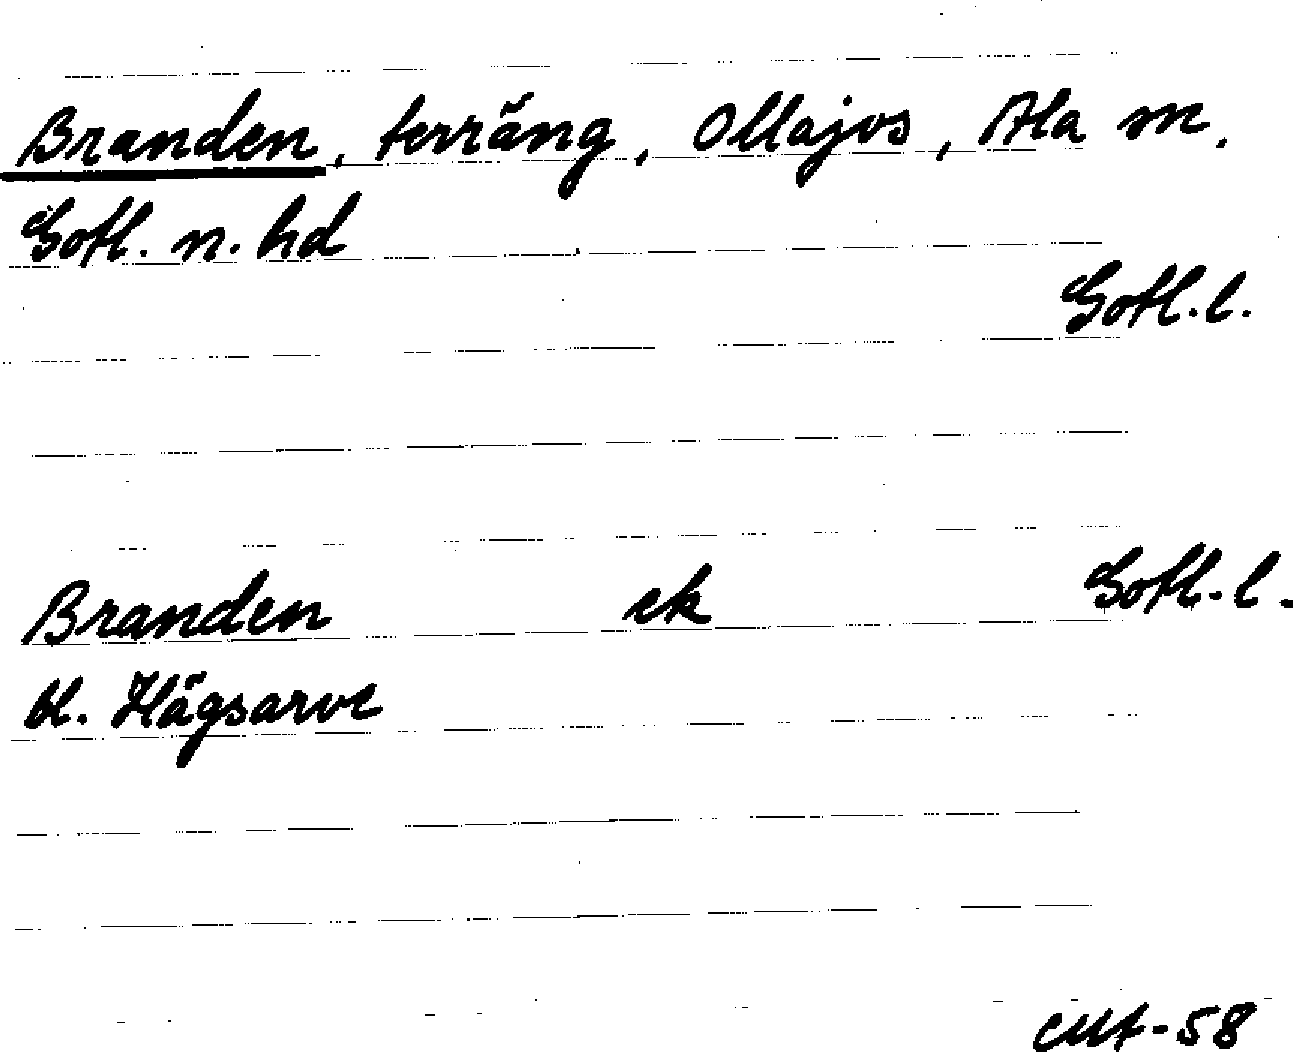 Branden, terräng, Ollajvs, Ala sn.
Gotl. n. hd
Gotl. l.
Branden ek Gotl. l.
bl. Hägsarve